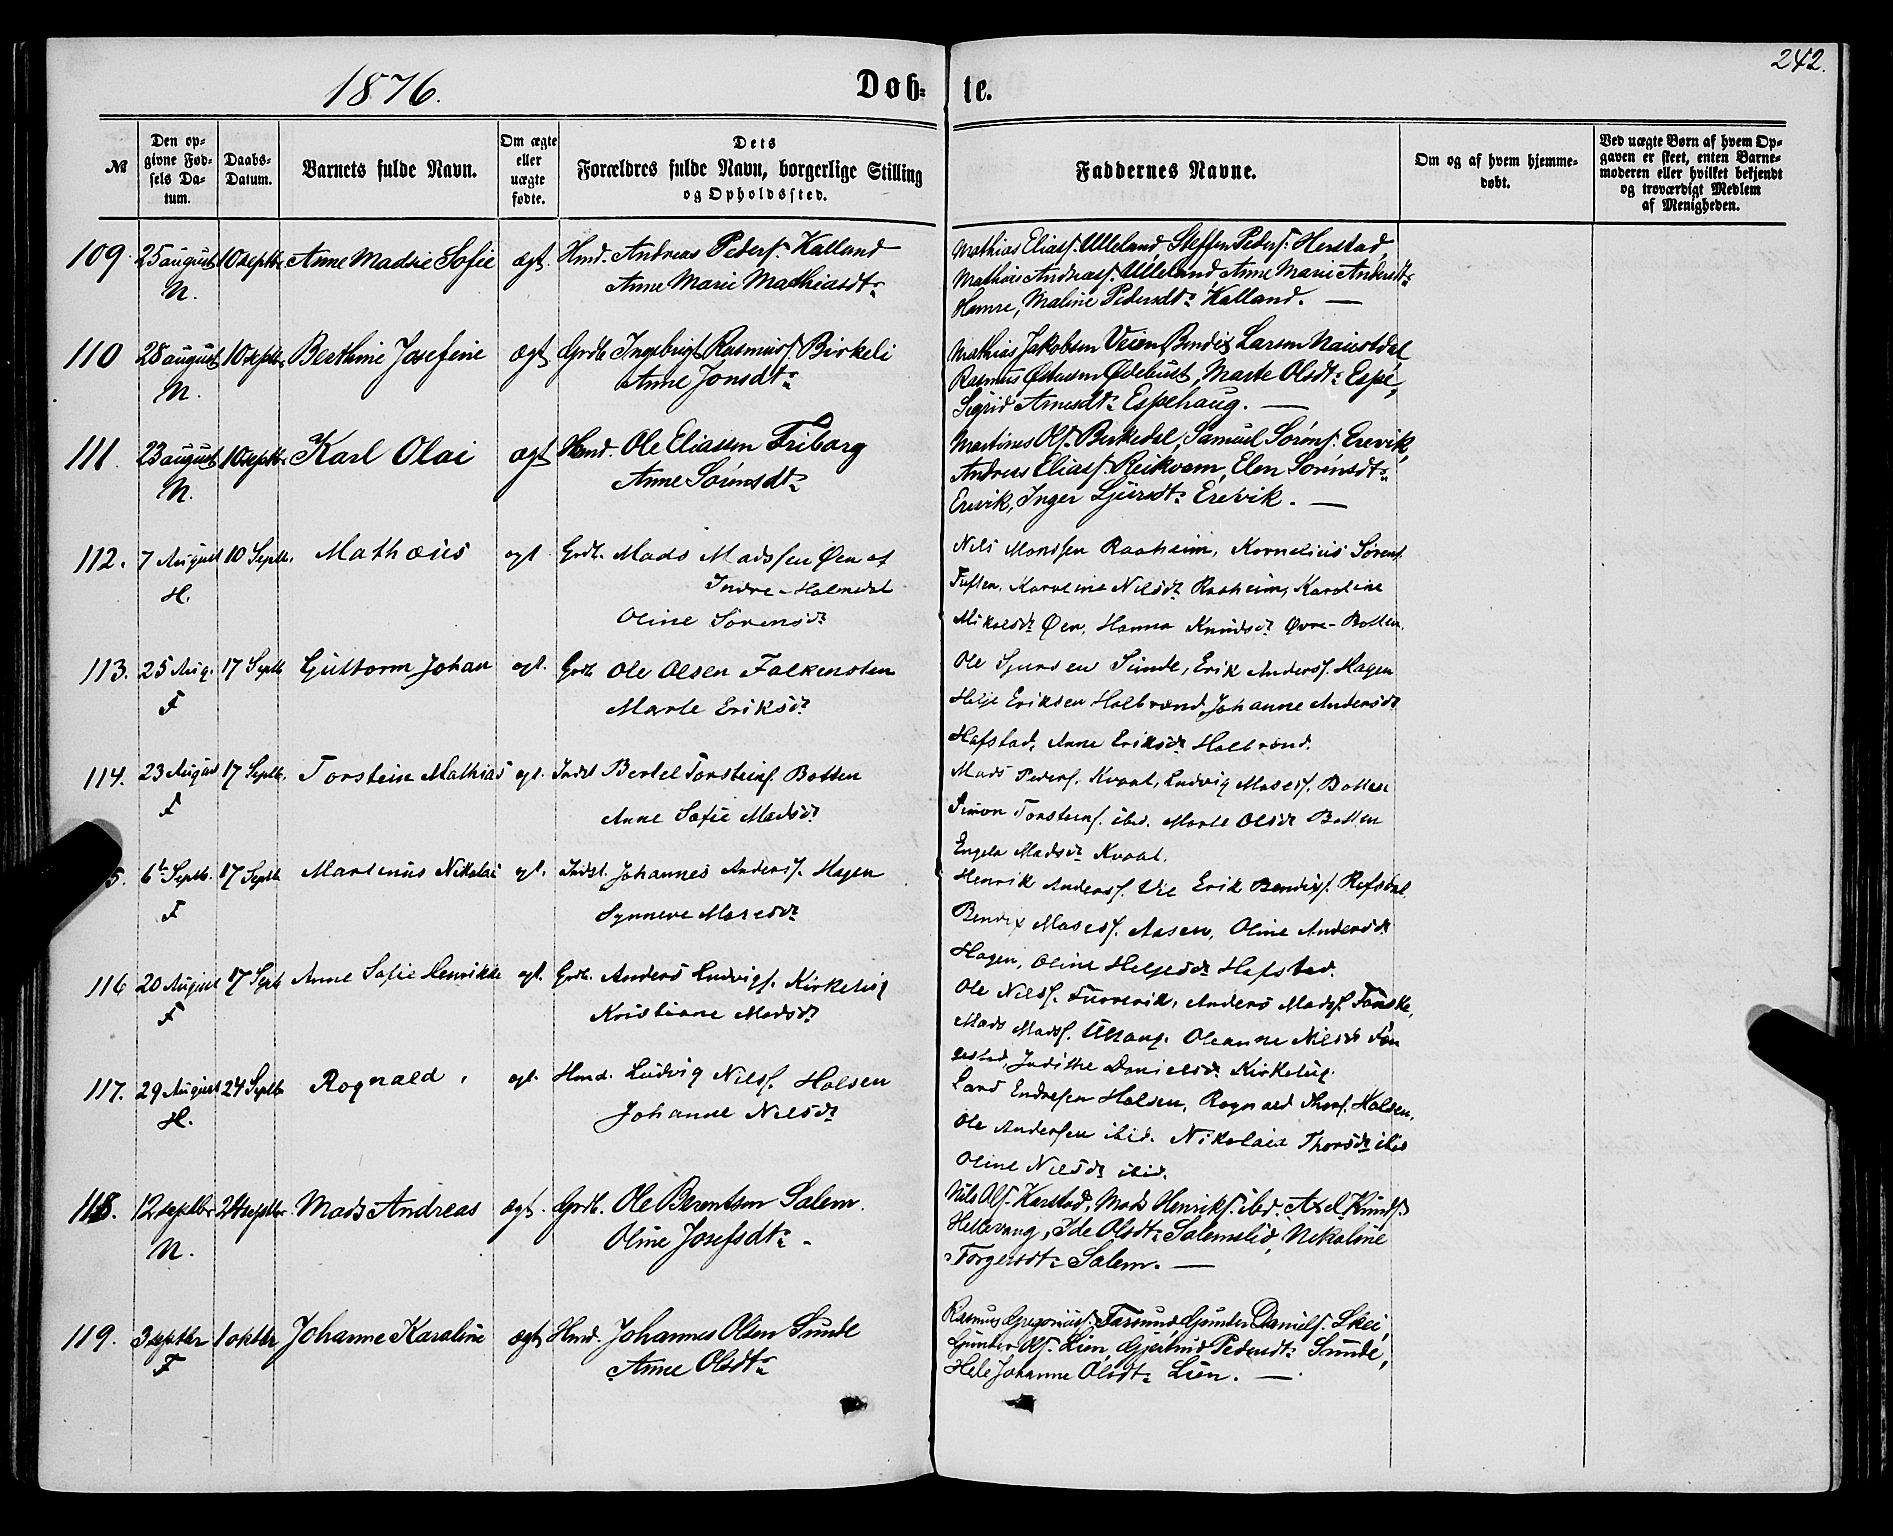 242.
1876.
Døb- te.
№
Den op-
givne Fød-
sels Da-
tum.
Daabs-
Datum.
Barnets fulde Navn.
Om ægte
eller
uægte
fødte.
Dets
Forældres fulde Navn, borgerlige Stilling
og Opholdssted.
Faddernes Navne.
Om og af hvem hjemme-
døbt.
Ved uægte Børn af hvem Op-
gaven er skeet, enten Barne-
moderen eller hvilket bekjendt
og troværdigt Medlem
af Menigheden.
109. 25 august 10 septbr Anne Madsie Sofie ægt. Hmd. Andreas Peders. Kalland
N. Anne Marie Mathiasdtr
Mathias Eliass. Ulleland, Steffen Peders. Herstad,
Mathias Andreass. Ulleland, Anne Marie Andersdtr
Hamre, Maline Pedersdtr Kalland. —
110 28 august 10 septbr Berthine Josefine ægt Grdb Ingebrigt Rasmuss. Birkeli
N. Anne Jonsdtr
Mathias Jakobsen Veien, Bendix Larsen Naustdal,
Rasmus Østensen Ødebust, Marte Olsdtr Espe,
Sigrid Arnesdtr Espehaug. —
111. 23 august 10 septbr Karl Olai ægt Hmd. Ole Eliassen Friborg
N. Anne Sørensdtr
Martinus Ols. Birkedal, Samuel Sørens. Erevik,
Andreas Eliass. Reikvam, Elen Sørensdtr
Erevik, Inger Sjursdtr Erevik. —
112. 7 August 10 Septb. Mathæus ægt. Grdb. Mads Madssen Øen af
H. Indre-Holmedal
Oline Sørensdr
Nils Monssen Raaheim, Kornelius Sørens.
Tuften, Karoline Nilsdr Raaheim, Karoline
Mikalsdr Øen, Hanna Knudsdr Øvre-Botten.
113. 25 Aug. 17 Septb Guttorm Johan ægt. Grdb Ole Olsen Falkensten
F Marte Eriksdr
Ole Sjursen Sunde, Erik Anderss. Hagen
Helje Eriksen Halbrænd, Johanne Andersdr
Hafstad, Anne Eriksdr Halbrænd.
114. 23 August 17 Septb. Torstein Mathias ægt. Indst Bertel Torsteins. Botten
F Anne Sofie Madsdr
Mads Peders. Kvaal, Ludvig Moses. Botten
Simon Torsteins. ibid. Marte Olsdr Botten
Engela Madsdr Kvaal.
5. 6te Septb. 17 Septb Martinus Nikolai ægt. Indst. Johannes Anderss. Hagen
F Synneve Mosesdr
Henrik Anderss. Vie Erik Bendixs. Refsdal
Bendix Moses. Aasen, Oline Andersdr
Hagen, Oline Heljesdr Hafstad.
116 20 August 17 Septb Anne Sofie Henrikke ægt. Grdb. Anders Ludvigs. Kirketeig
F Kristiane Madsdr
Ole Nilss. Furevik, Anders Madss.
Mads Madss. Oleanne Nilsdr
Judithe Danielsdr Kirketeig.
117. 29 August 24 Septb Rognald. ægt. Hmd. Ludvig Nilss. Halsen
H. Johanne Nilsdr
Lars Endresen Halsen, Rognald Thors. Halsen,
Ole Andersen ibid. Nikolaia Thorsdr ibid
Oline Nilsdr ibid.
118. 12 septbr 24 septbr Mads Andreas ægt. Grdb. Ole Berentsen Salem.
N. Oline Josefsdtr
Nils Ols. Karstad, Mads Henriks. ibd. Axel Knuds.
Hellevang, Ide Olsdtr Salemslid, Nikoline
Torgersdtr Salem. —
119. 3 septbr 1 oktbr Johanne Karoline ægt Hmd. Johannes Olsen Sunde
F Anne Olsdtr
Rasmus Gregorius. Farsund, Gunder Daniels. Skei,
Gunder Ols. Lien, Gjertrud Pedersdtr Sunde,
Hele Johanne Olsdtr Lien. —